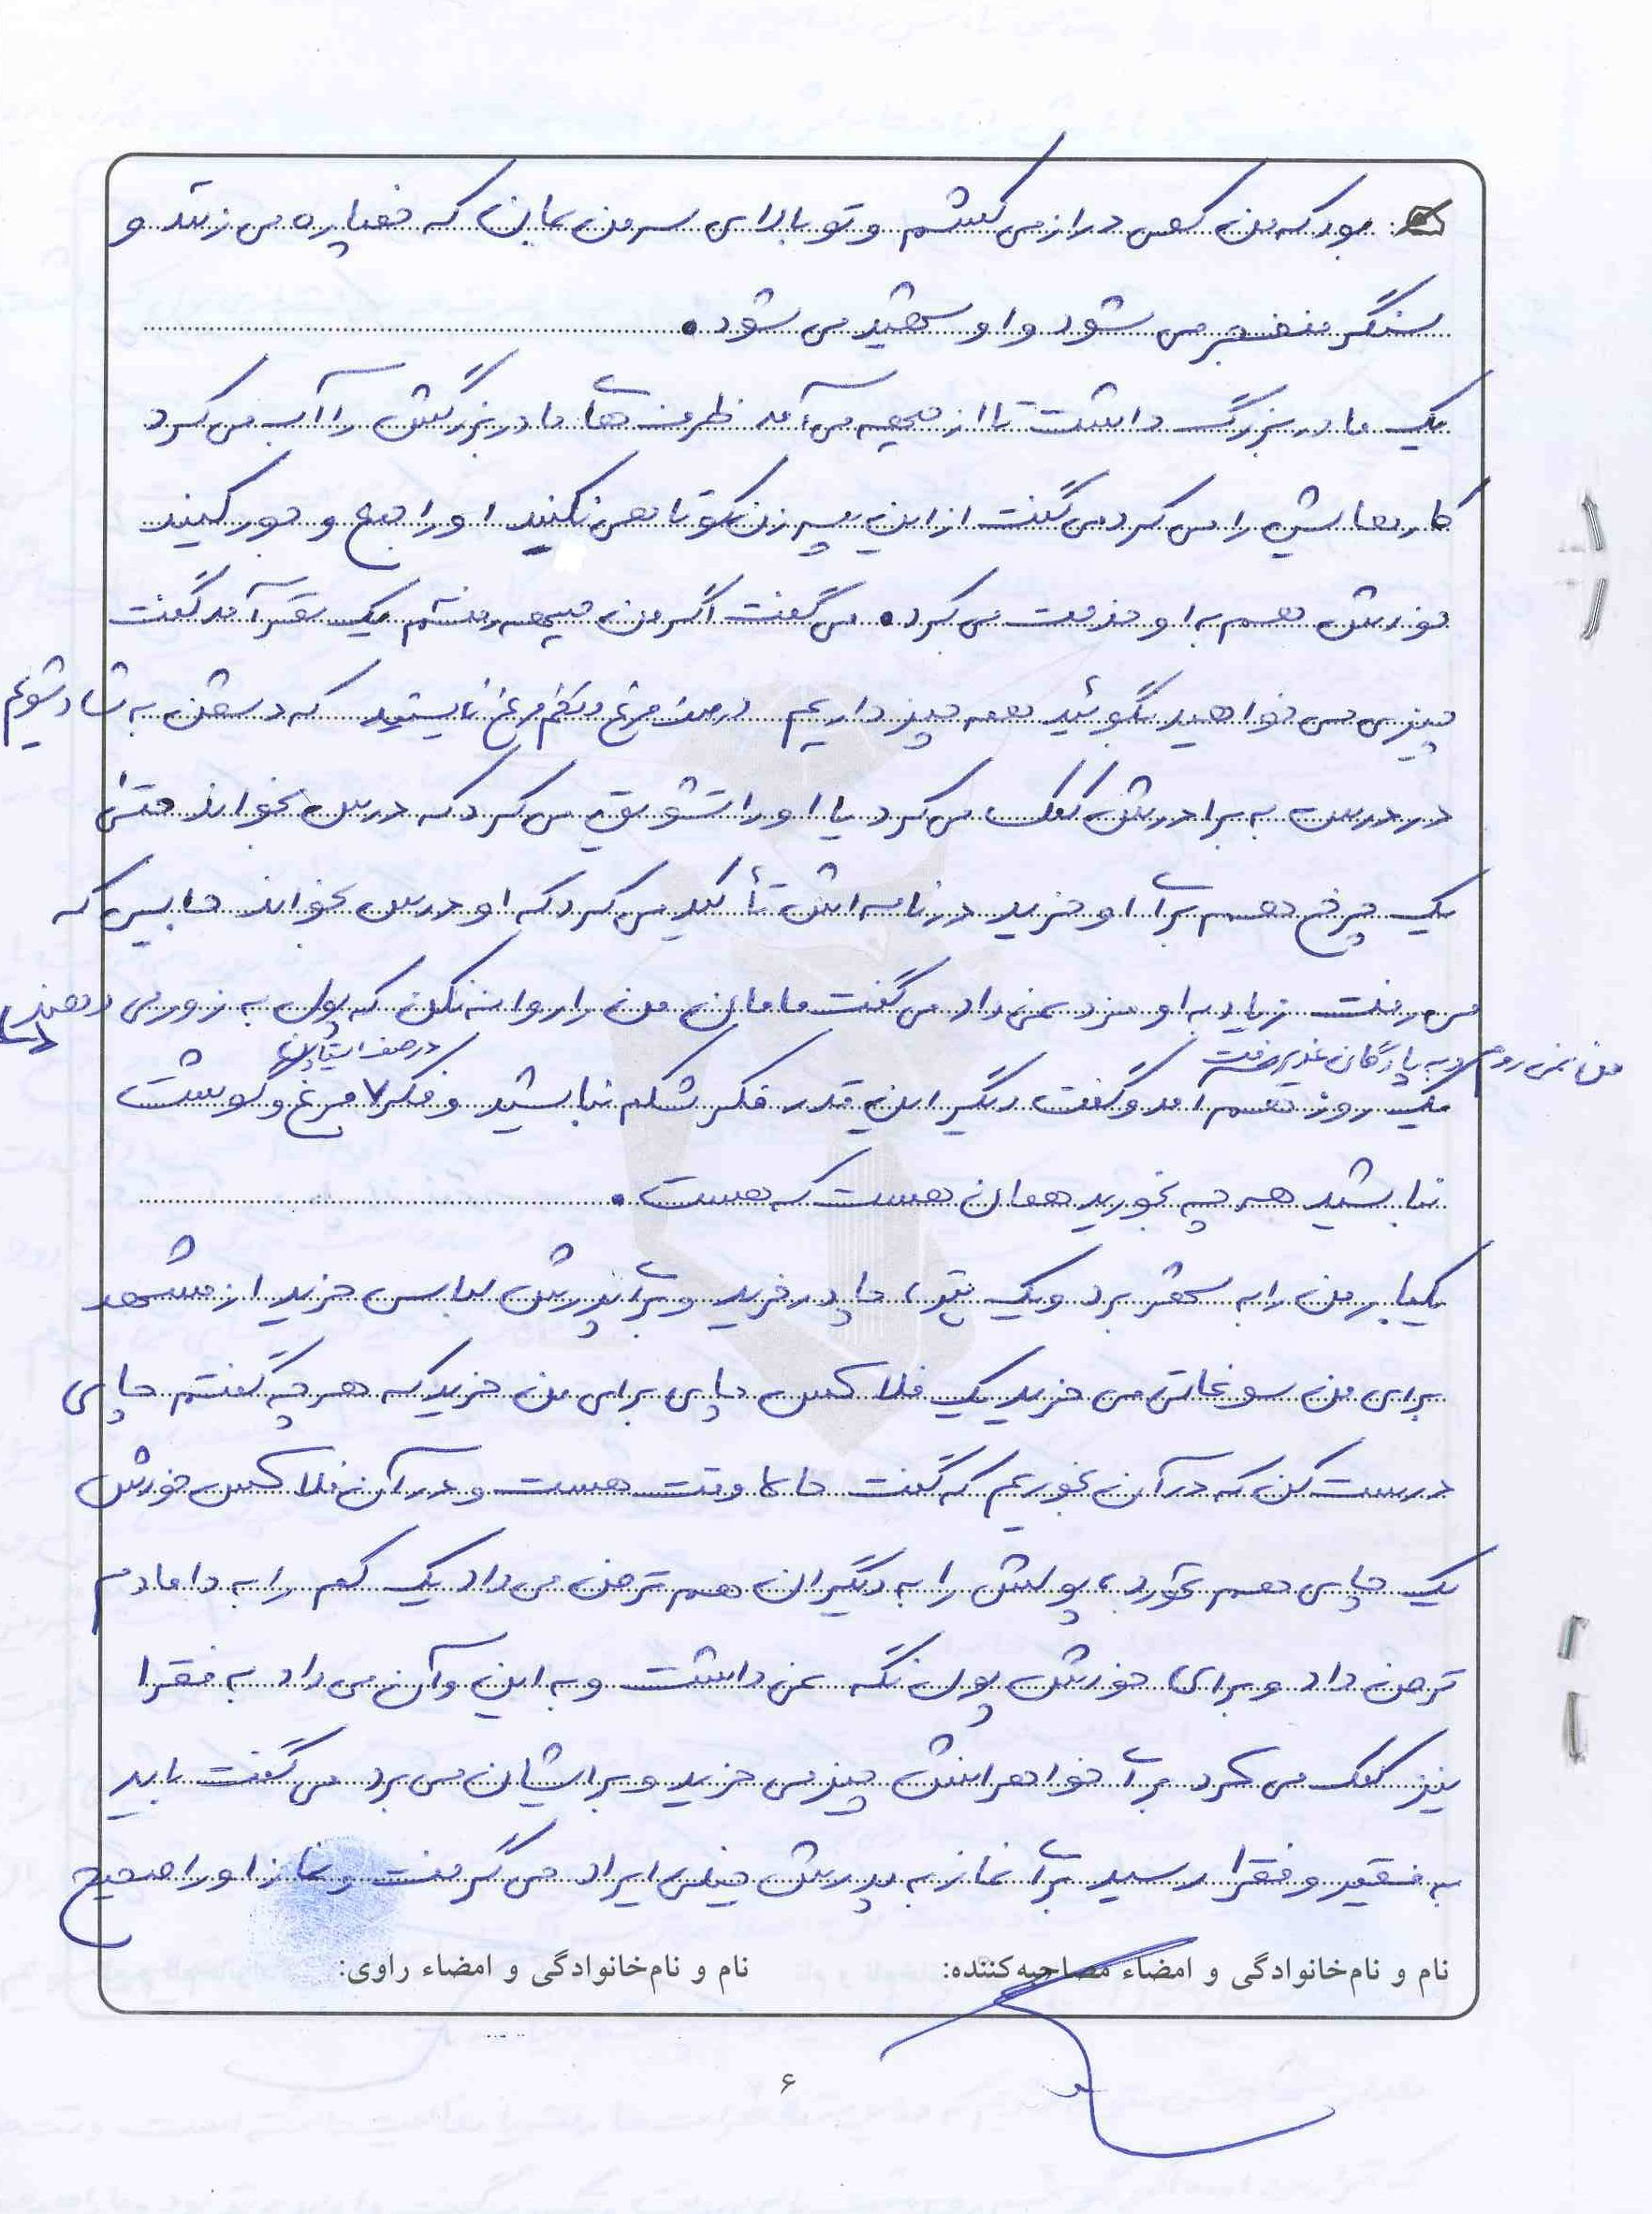 بود که من کمی دراز می کشم و تو بالای سر من بمان که خمپاره می زنند و
سنگر منفجر می شود و او شهید می شود.
یک مادربزرگ داشت تا از جبهه می آمد ظرف های مادربزرگش را آب می کرد
کارهایش را می کرد می گفت از این پیرزن کوتاهی نکنید او را جمع و جور کنید
خودش هم به او خدمت می کرد. می گفت اگر من جبهه رفتم یک نفر آمد گفت
چیزی می خواهید بگوئید همه چیز داریم در صف مرغ و تخم مرغ نایستید که دشمن به شاد شویم
در درس به برادرش کمک می کرد یا او را تشویق می کرد که درس بخواند حتی
یک چرخ هم برای او خرید در نامه اش تأکید می کرد که او درس بخواند جایی که
می رفت زیاد به او مزد نمی داد می گفت مامان من را روانه نکن که پول به زور می دهند
من نمی روم و به پادگان غدیر رفت
یک روز هم آمد و گفت دیگر این قدر فکر شکم نباشید و فکر در صف ایستادن مرغ و گوشت
نباشید هر چه بخورید همان هست که هست.
یکبار من را به سفر برد و یک پتو، چادر خرید و برای پدرش لباس خرید از مشهد
برای من سوغاتی می خرید یک فلاکس چای برای من خرید که هر چه گفتم چای
درست کن که در آن بخوریم که گفت حالا وقت هست و در آن فلاکس خودش
یک چای هم نخورد، پولش را به دیگران هم قرض می داد یک کم را به دامادم
قرض داد و برای خودش پول نگه نمی داشت و به این و آن می داد به فقرا
نیز کمک می کرد برای خواهرانش چیز می خرید و برایشان می برد می گفت باید
به فقیر و فقرا رسید برای نماز به پدرش خیلی ایراد می گرفت و نماز او را صحیح
نام و نام‌خانوادگی و امضاء مصاحبه‌کننده:
نام و نام‌خانوادگی و امضاء راوی:
۶